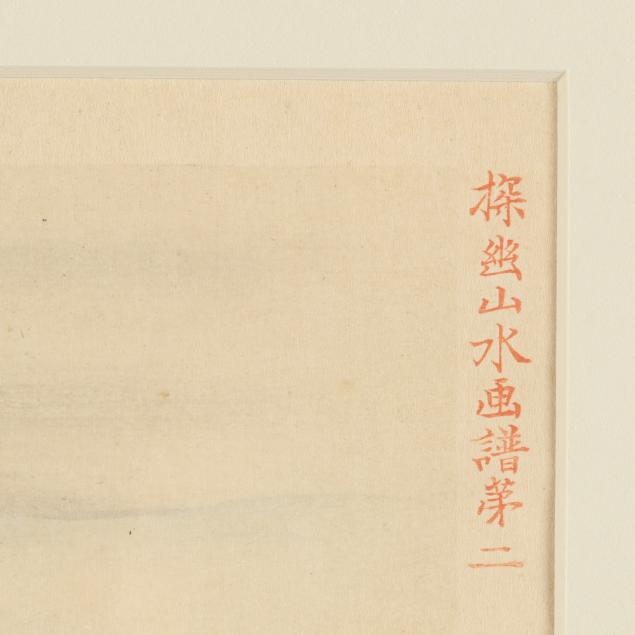 探幽山水画譜第二